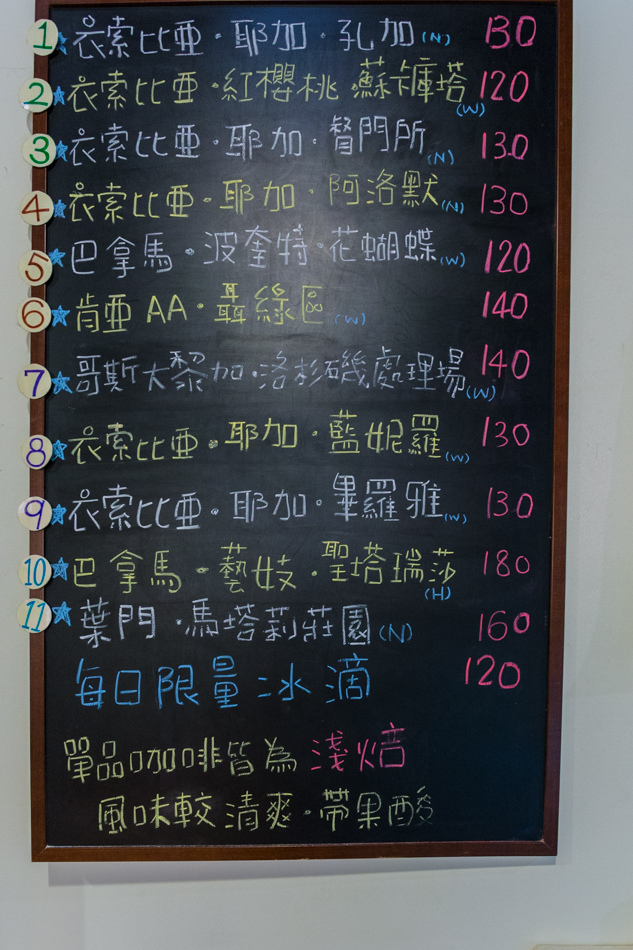 1 衣索比亞·耶加·孔加(N) 130
2 衣索比亞·紅櫻桃·蘇卡褲塔(W) 120
3 衣索比亞·耶加·督門所(N) 130
4 衣索比亞·耶加·阿洛默(N) 130
5 巴拿馬·波奎特·花蝴蝶(W) 120
6 肯亞AA·聶綠區(W) 140
7 哥斯大黎加·洛杉磯處理場(W) 140
8 衣索比亞·耶加·藍妮羅(W) 130
9 衣索比亞·耶加·畢羅雅(W) 130
10 巴拿馬·藝妓·聖塔瑞莎(H) 180
11 葉門·馬塔莉莊園(N) 160
每日限量冰滴 120
單品咖啡皆為淺焙
風味較清爽·帶果酸